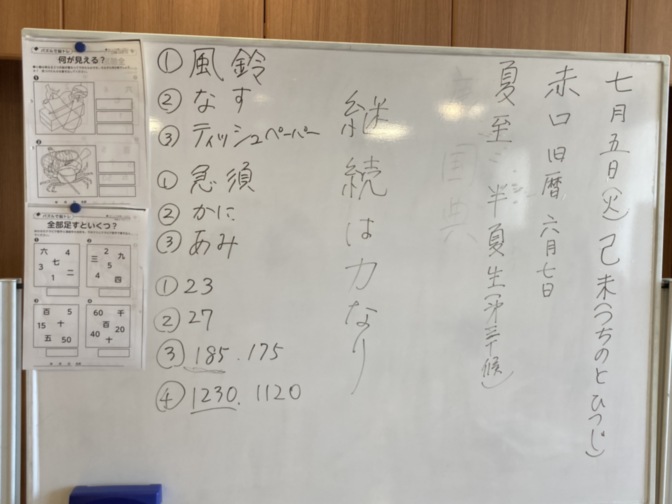 七月五日(火)己未(つちのとひつじ)
赤口旧暦六月七日
夏至 半夏生(第三十候)
継続は力なり
①風鈴
②なす
③ティッシュペーパー
①急須
②かに
③あみ
①23
②27
③185.175
④1230.1120
パズルで脳トレ
何が見える?
パズルで脳トレ
全部足すといくつ?
六 4
七
3 二
1
2 九
三 5
4 四
百 5
15 十
五 50
60 千
百 20
40 十